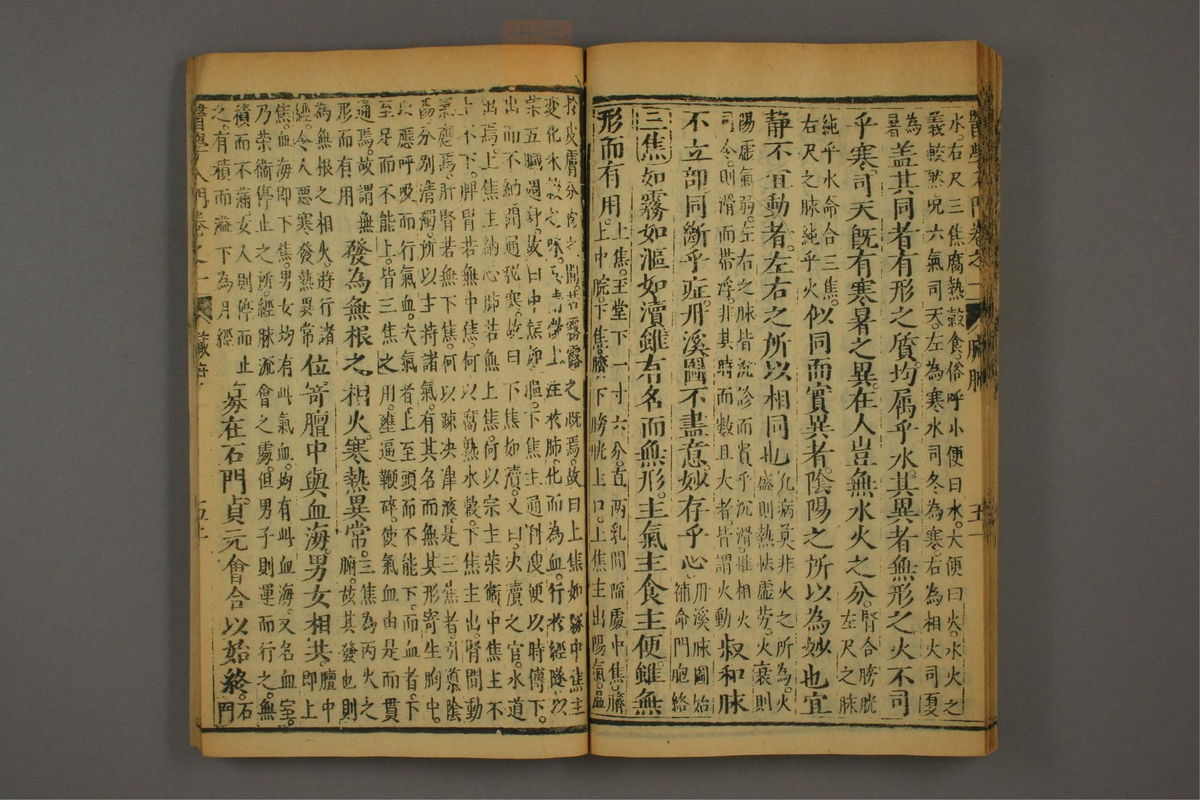 醫學入門卷之一 臟腑 五一
水。右尺三焦腐熱榖食。俗呼小便曰水。大便曰火。水火之
義較然况六氣司天。左為寒水司冬為寒。右為相火司夏
為暑
盖其同者有形之質。均属乎水。其異者無形之火不司
乎寒。司天既有寒暑之異。在人豈無水火之分。
腎合膀胱
左尺之脉
純乎水命合三焦。
右尺之脉純乎火
似同而實異者。陰陽之所以為妙也宜
静不宜動者。左右之所以相同也
凡病莫非火之所為。火
盛則熱怯虚劳。火衰則
陽虚氣弱。左右之脉皆沉診而貴乎沉滑。惟相火
司令。則滑而帶浮。非其時而数且大者。皆謂火動
叔和脉
不立部。同断乎症。丹溪圖不盡意。妙存乎心
丹溪脉圖始
補命門胞絡
三焦如霧如漚如瀆雖有名而無形。主氣主食主便。雖無
形而有用。
上焦。玉堂下一寸六分。直两乳間陷處中焦。臍
上中脘。下焦。臍下膀胱上口。上焦主出陽氣。温
於皮膚分肉之間。若霧露之溉焉。故曰上焦如霧中焦主
變化水榖之味。其精微上注於肺化而為血。行於經隧以
荣五臟週身。故曰中焦如漚。下焦主通利溲便以時傳下。
出而不納。開通秘塞。故曰下焦如瀆。又曰。决瀆之官。水道
出焉。上焦主納心肺若無上焦。何以宗主荣衛中焦主不
上不下。脾胃若無中焦。何以腐熟水榖。下焦主出。腎間動
氣應焉。肝腎若無下焦。何以疎决津液。是三焦者。引導陰
陽分别清濁。所以主持諸氣。有其名而無其形寄生胸中。
以應呼吸而行氣血。夫氣者上至頭而不能下。而血者下
至足而不能上。皆三焦之用。壅遏鞭碎。使氣血由是而貫
通焉。故謂無
形而有用
發為無根之相火。寒熱異常。
三焦為丙火之
腑。故其發也則
為無根之相火。游行諸
經。令人悪寒發熱異常
位寄膻中與血海。男女相共。
膻中
即上
焦。血海即下焦。男女均有此氣血。均有此血海。又名血室。
乃荣衛停止之所。經脉流會之處。但男子則運而行之。無
積而不滿女人則停而止
之。有積而溢下為月經
募在石門。貞元會合以始終。
石
門
醫學入門卷之一 臟腑